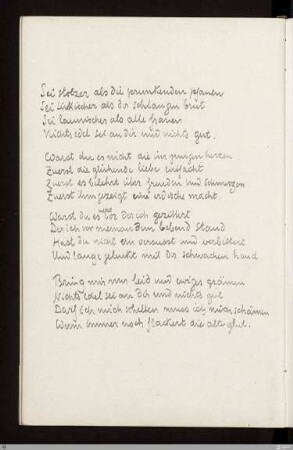 Sei stolzer als die prunkenden pfauen
Sei tückischer als der schlangen brut
Sei launischer als alle frauen
Nichts edel sei an dir und nichts gut.
Warst du es nicht die im jungen herzen
Zuerst die glühende liebe entfacht
Zuerst es belehrt über freuden und schmerzen
Zuerst ihm gezeigt eine irdische macht.
Warst du es nicht vor der ich gezittert
Der ich vor niemandem bebend stand
Hast du nicht ihn versüsst und verbittert
Und lange gelenkt mit der schwachen hand
Bring mir nur leid und ewiges grämen
Nichts edel sei an dir und nichts gut
Darf ich mich schelten muss ich mich schämen
Wenn immer noch flackert die alte glut.